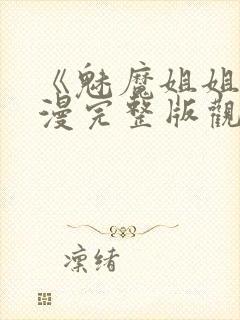 《魅魔姐姐
漫完整版觀
凛绪